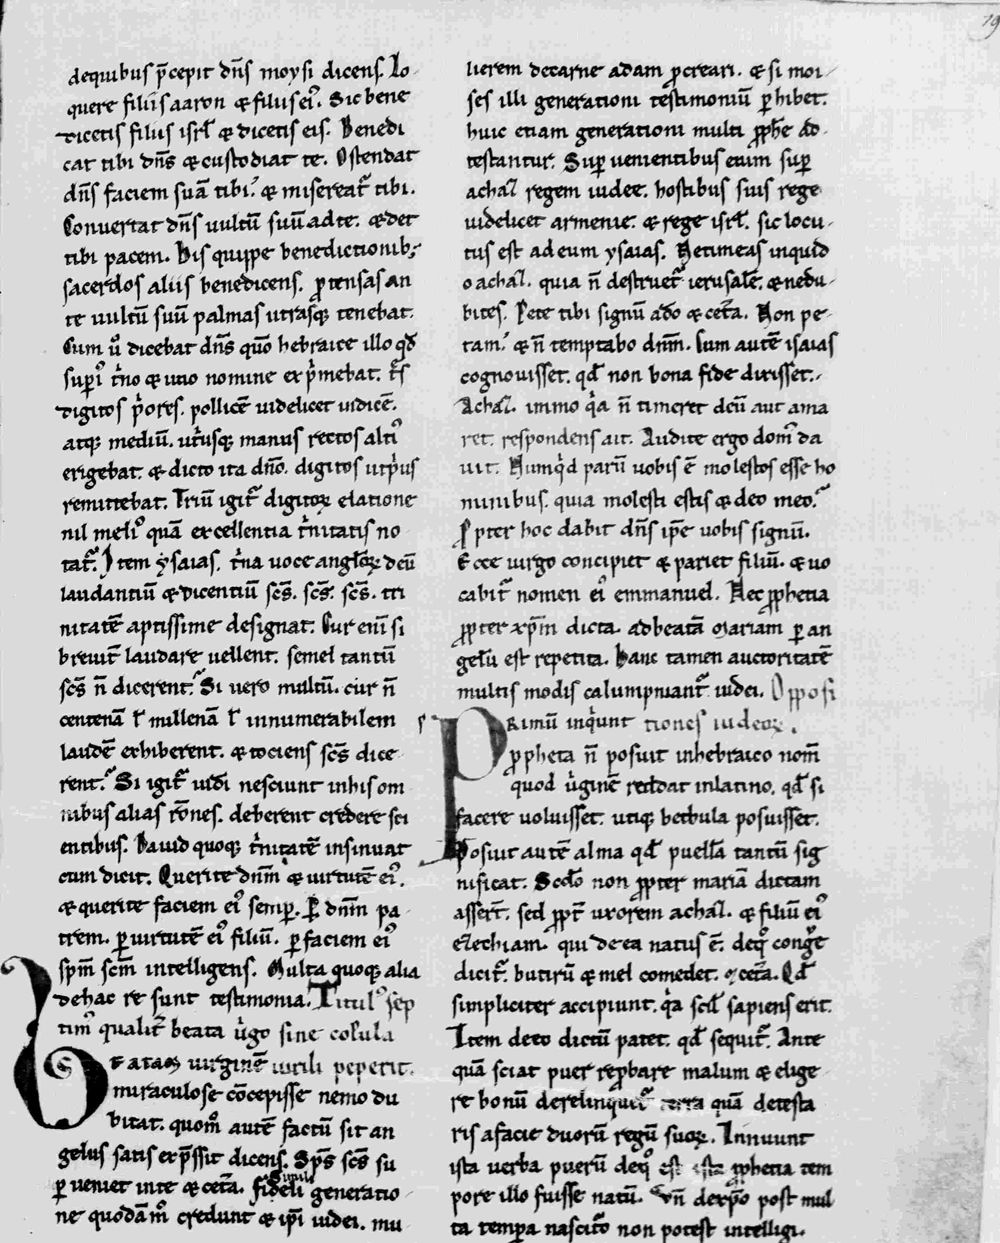 19
dequibus p̄cepit dn̄s moysi dicens. Lo
quere filiis aaron & filiis ei᷒. Sic bene
dicetis filiis isrł & dicetis eis. Benedi
cat tibi dn̄s & custodiat te. Ostendat
dn̄s faciem suā tibi. & misereat᷑ tibi.
Conuertat dn̄s uultū suū adte. & det
tibi pacem. His quippe benedictionib;
sacerdos aliis benedicens. ꝓtensas an
te uultū suū palmas utrasq; tenebat.
Cum ū dicebat dn̄s quō hebraice illo qđ
supi᷒ t̄no & uno nomine exp̄mebat. t̄s
digitos p̄ores. pollicē uidelicet indicē.
atq; mediū. ut̄usq; manus rectos alti᷒
erigebat. & dicto ita dn̄o. digitos ut p̄us
remittebat. Triū igit᷑ digitoꝝ elatione
nil meli᷒ quā excellentia t̄nitatis no
tat᷑. Item ysaias. t̄na uoce angłoꝝ dcū
laudantiū & dicentiū sc̄s. sc̄s. sc̄s. tri
nitatē aptissime designat. Cur enī si
breuit᷑ laudare uellent. semel tantū
sc̄s n̄ dicerent. Si uero multū. cur n̄
centenā ł millenā ł innumerabilem
laudē exhiberent. & tociens sc̄s dice
rent. Si igit᷑ iudi nesciunt inhis om
nibus alias rōnes. deberent credere sci
entibus. Dauid quoq; t̄nitatē insinuat
cum dicit. Querite dn̄m & uirtutē ei᷒.
& querite faciem ei᷒ semp. P dn̄m pa
trem. ꝑ uirtutē ei᷒ filiū. ꝑ faciem ei᷒
spm̄ scm̄ intelligens. Multa quoq; alia
dehac re sunt testimonia. Titul᷒ sep
tim᷒ qualit᷑ beata ūgo sine copula
Beatam uirginē uirili peperit.
miraculose cōcepisse nemo du
bitat. quom̄ autē factū sit an
gelus satis exp̄ssit dicens. Sps̄ sc̄s su
ꝑueniet inte & cet̄a. fideli generatio
ne quodām̄ credunt & ipi iudei. mu
lierem decarne adam ꝓcreari. & si moi
ses illi generationi testimoniū ꝑhibet.
huic etiam generationi multi ꝓphē ad
testantur. Supuenientibus enim sup
achaz regem iudee. hostibus suis rege
uidelicet armenie. & rege isrł. sic locu
tus est adeum ysaias. Netimeas inquid
o achaz. quia n̄ destruet᷑ ierusalē. & nedu
bites. Pete tibi signū adō & cet̄a. Non pe
tam. & n̄ temptabo dn̄m. Cum autē isaias
cognouisset. qđ non bona fide dixisset.
Achaz. immo q̄a n̄ timeret deū aut ama
ret. respondens ait. Audite ergo dom᷒ da
uit. Numq̄d parū uobis ē molestos esse ho
minibus. quia molesti estis & deo meo.
Ꝓpter hoc dabit dn̄s ip̄e uobis signū.
Ecce uirgo concipiet & pariet filiū. & uo
cabit᷑ nomen ei᷒ emmanuel. Hec ꝓphetia
ꝓpter xp̄m dicta. adbeatā Mariam ꝑ an
gelū est repetita. Hanc tamen auctoritatē
multis modis calumpniant᷑ iudei. Opposi
Primū inq̄unt tiones iudeoꝝ.
ꝓpheta n̄ posuit inhebraico nom̄
quod ūginē reddat inlatino. qđ si
facere uoluisset. utiq; bethula posuisset.
Posuit autē alma qđ puellā tantū sig
nificat. Scdo non ꝓpter mariā dictam
assert̄. sed ꝓpt᷑ uxorem achaz. & filiū ei᷒
ezechiam. qui de ea natus ē. deq᷒ congͣe
dicit᷑. butirū & mel comedet. & cet̄a. Qđ
simpliciter accipiunt. q̄a scił sapiens erit.
Item deeo dictū patet. qđ sequit᷑. Ante
quā sciat puer reꝓbare malum & elige
re bonū derelinquet᷑ terra quā detesta
ris afacie duorū regū suoꝝ. Innuunt
ista uerba puerū deq᷒ est ista ꝓphetia tem
pore illo fuisse natū. Vn̄ dexp̄o post mul
ta tempa nascit̄o non potest intelligi.